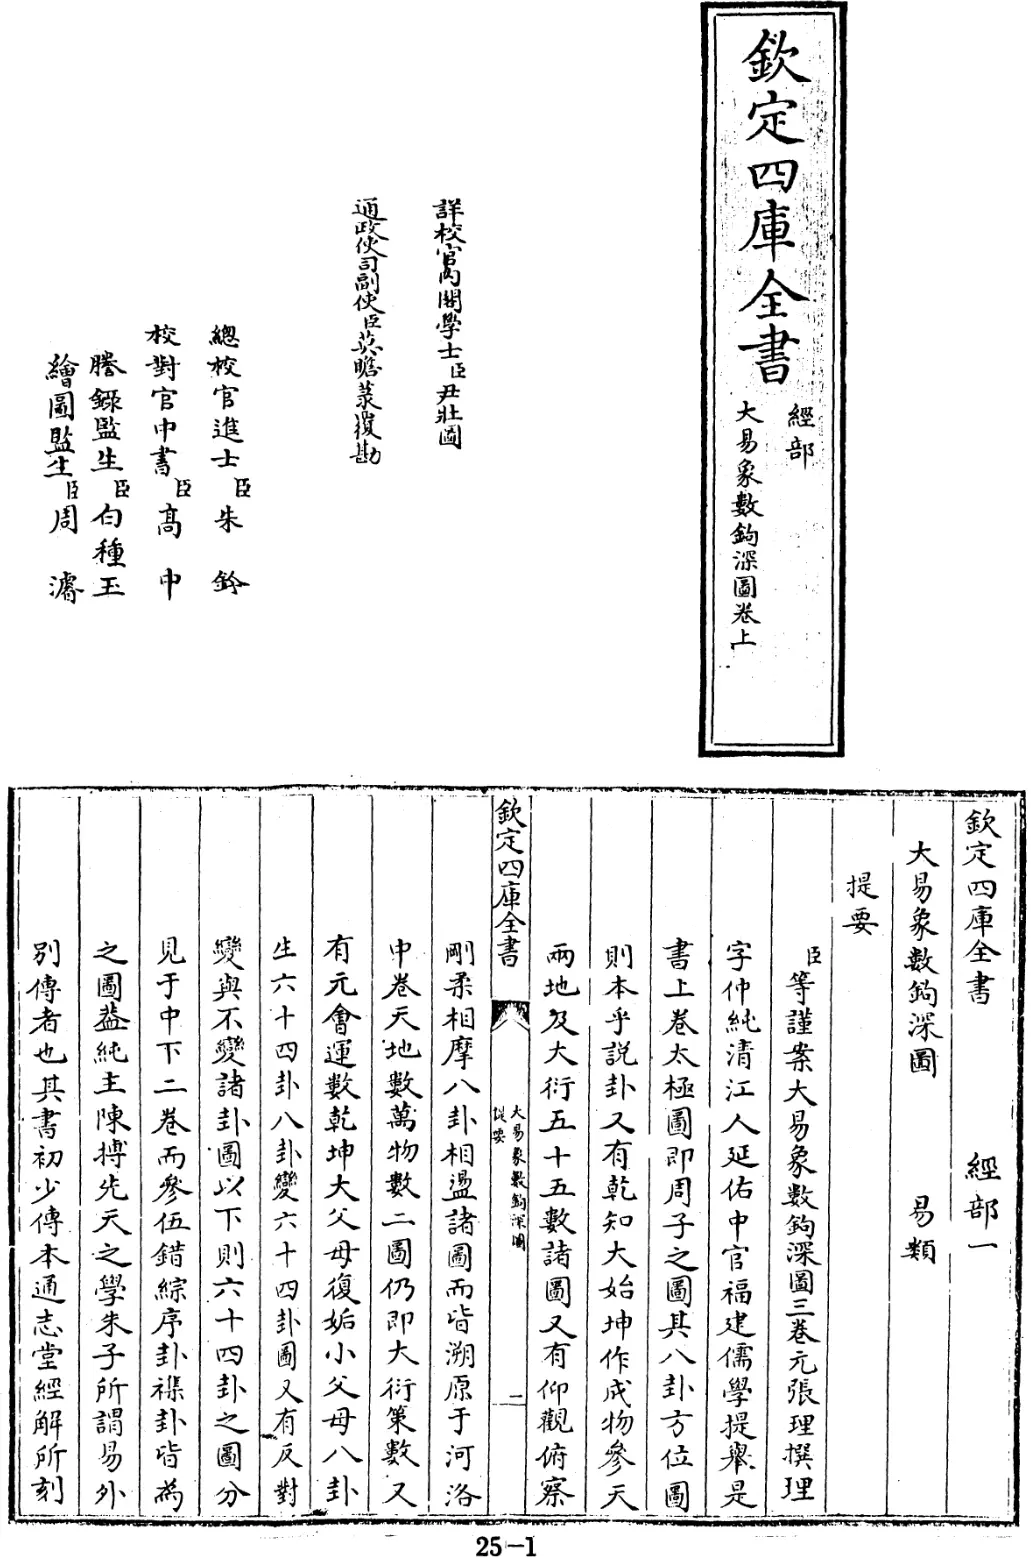 欽定四庫全書
經部
大易象數鉤深圖卷上
詳校官內閣學士臣尹壯圖
通政使司副使臣莫瞻菉覆勘
總校官進士臣朱鈐
校對官中書臣高中
謄錄監生臣白種玉
繪圖監生臣周濬
欽定四庫全書 經部一
大易象數鉤深圖 易類
提要
臣等謹案大易象數鉤深圖三卷元張理撰理
字仲純清江人延佑中官福建儒學提舉是
書上卷太極圖即周子之圖其八卦方位圖
則本乎說卦又有乾知大始坤作成物參天
兩地及大衍五十五數諸圖又有仰觀俯察
欽定四庫全書
大易象數鉤深圖
提要
二
剛柔相摩八卦相盪諸圖而皆溯原于河洛
中卷天地數萬物數二圖仍即大衍策數又
有元會運數乾坤大父母復姤小父母八卦
生六十四卦八卦變六十四卦圖又有反對
變與不變諸卦圖以下則六十四卦之圖分
見于中下二卷而參伍錯綜序卦襍卦皆為
之圖葢純主陳摶先天之學朱子所謂易外
別傳者也其書初少傳本通志堂經解所刻
25-1